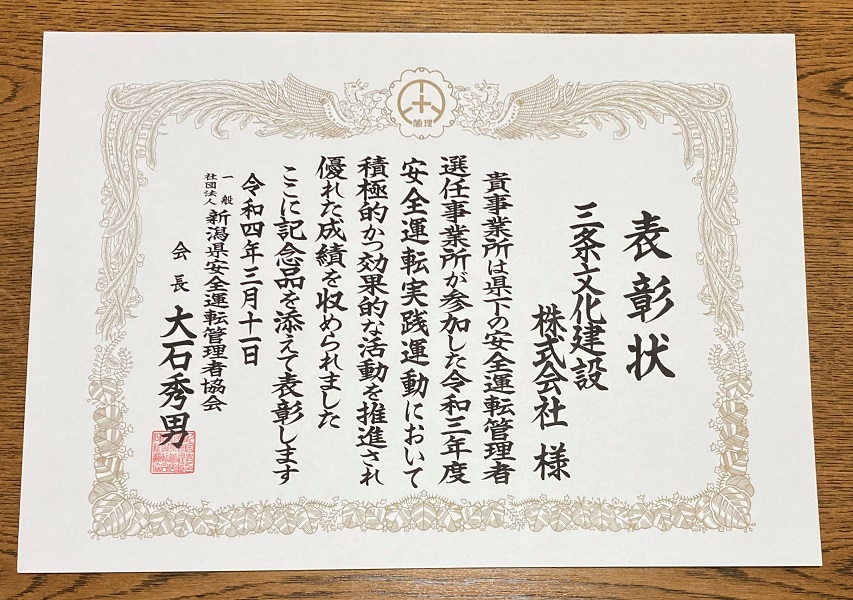 管理
表彰状
三条文化建設
株式会社 様
貴事業所は県下の安全運転管理者
選任事業所が参加した令和三年度
安全運転実践運動において
積極的かつ効果的な活動を推進され
優れた成績を収められました
ここに記念品を添えて表彰します
令和四年三月十一日
一般社団法人 新潟県安全運転管理者協会
会長 大石秀男